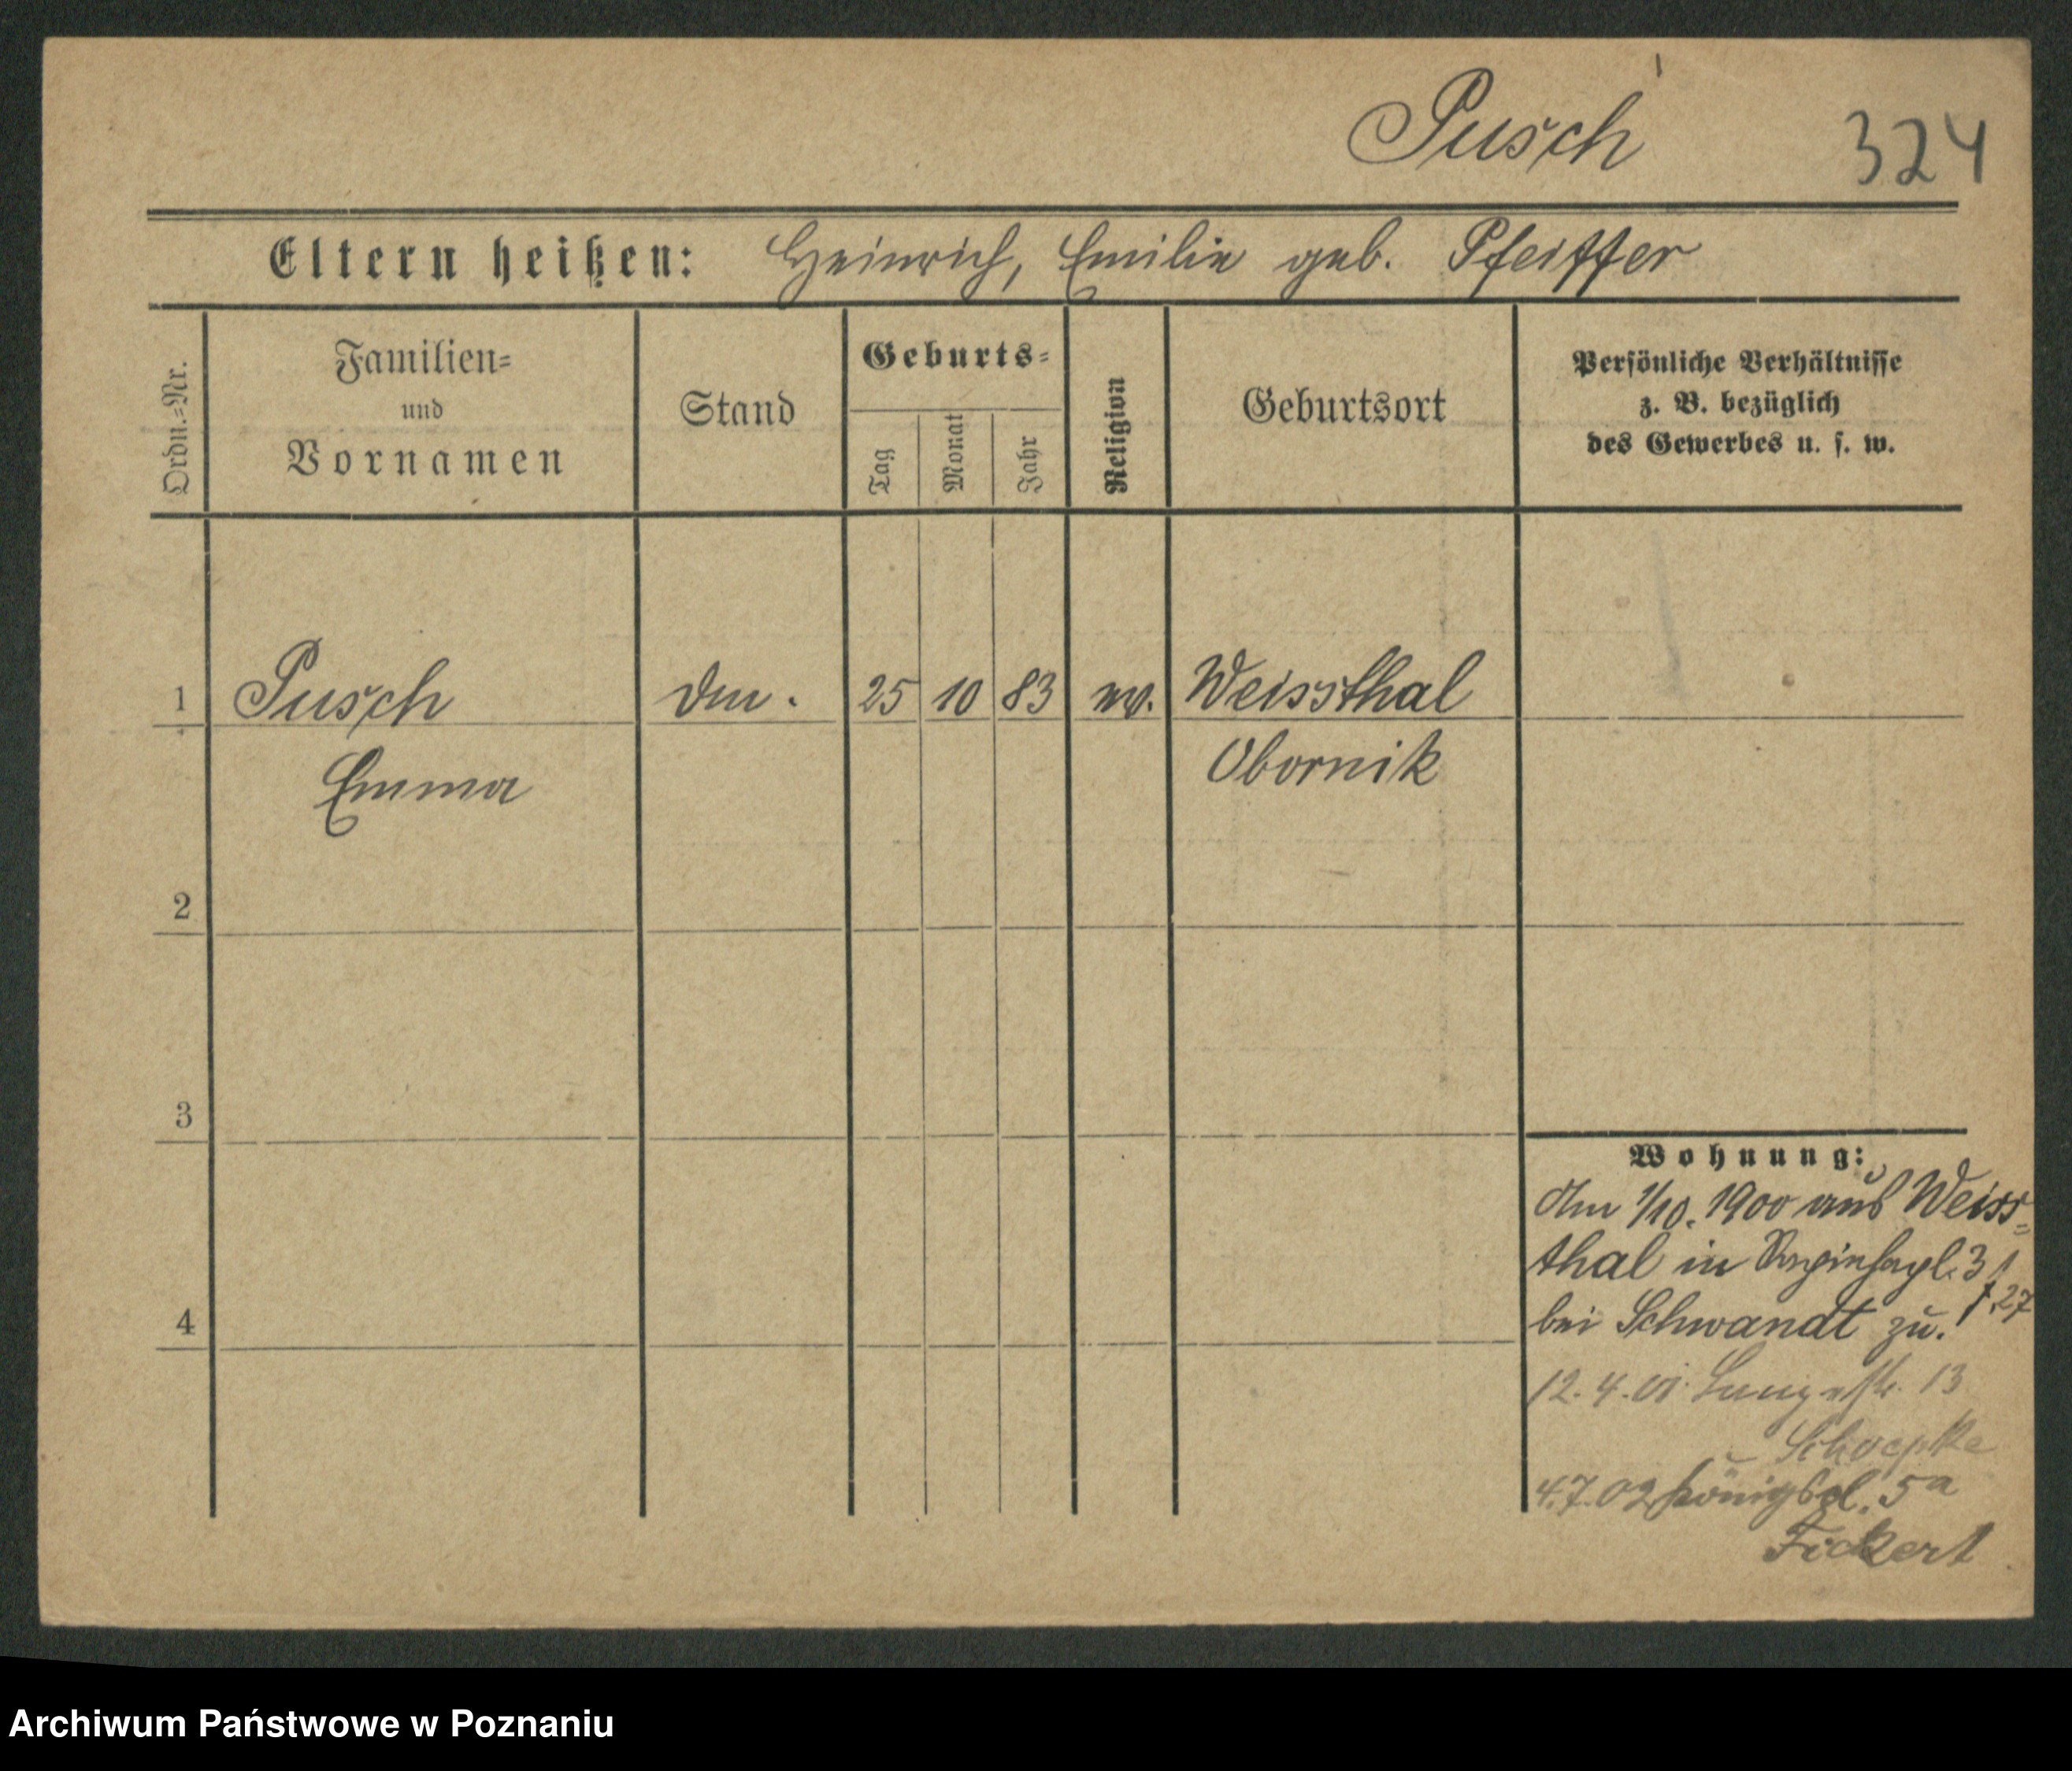 Pusch
324
Eltern heißen: Heinrich, Emilie geb. Pfeiffer
Ordn.=Nr.
Familien=
und
Vornamen
Stand
Geburts=
Tag
Monat
Jahr
Religion
Geburtsort
Persönliche Verhältnisse
z. B. bezüglich
des Gewerbes u. s. w.
1 Pusch 25 10 83 ev. Weissthal
Emma Obornik
2
3
4
Wohnung:
Am 1/10. 1900 aus Weiss=
thal in 31
bei Schwandt zu.
12.4.01. Langestr. 13
Schoepke
4.7.02 Königspl. 5a
Fickert
Archiwum Państwowe w Poznaniu